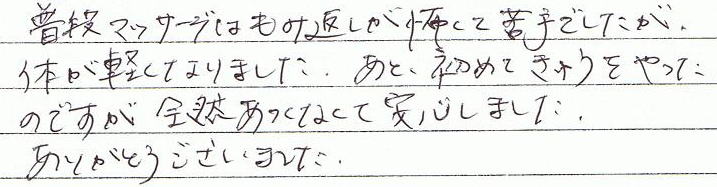 普段マッサージはもみ返しが怖くて苦手でしたが、
体が軽くなりました。あと、初めてきゅうをやった
のですが全然あつくなくて安心しました。
ありがとうございました。